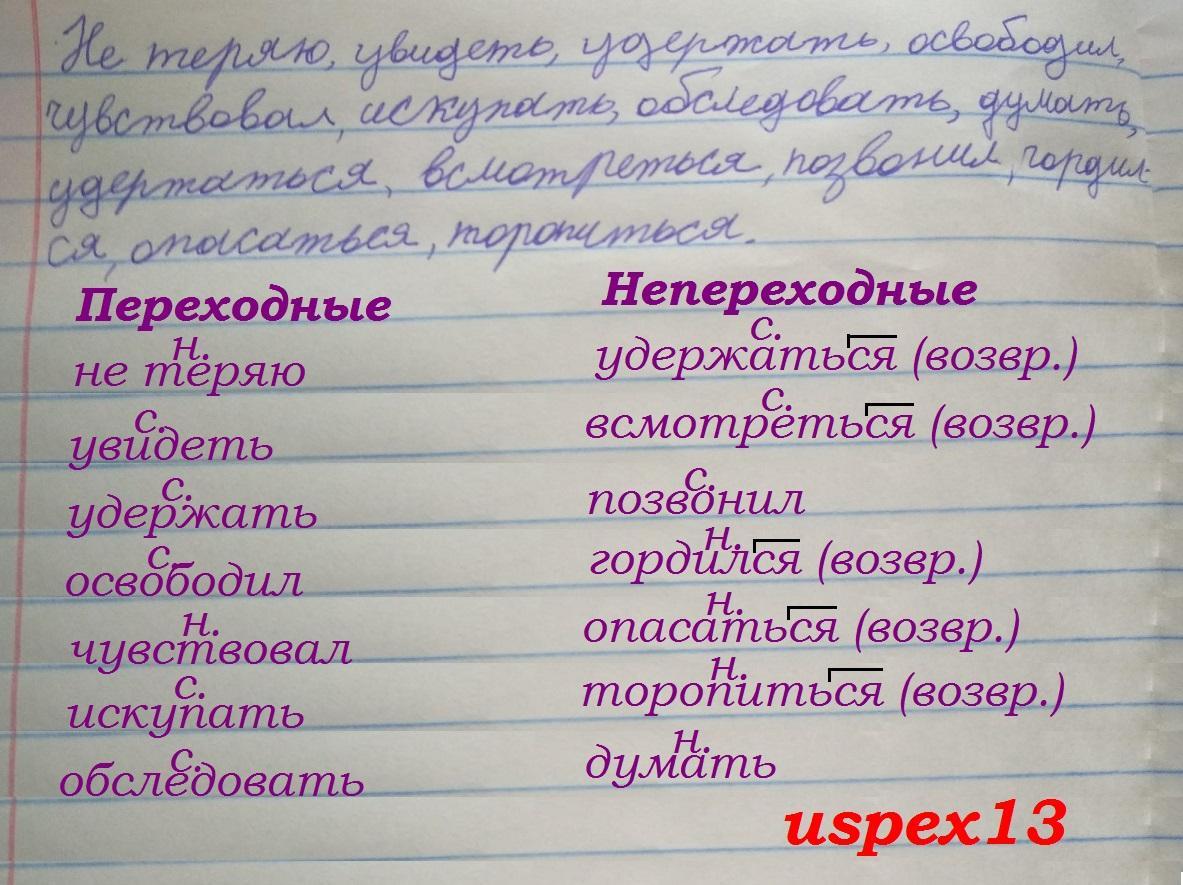 Не теряю, увидеть, удержать, освободил,
чувствовал, искупать, обследовать, думать,
удержаться, всмотреться, позвонил, гордил-
ся, опасаться, торопиться.
Переходные
н.
не теряю
с.
увидеть
с.
удержать
с.
освободил
н.
чувствовал
с.
искупать
с.
обследовать
Непереходные
с.
удержаться (возвр.)
с.
всмотреться (возвр.)
с.
позвонил
н.
гордился (возвр.)
н.
опасаться (возвр.)
н.
торопиться (возвр.)
н.
думать
uspex13